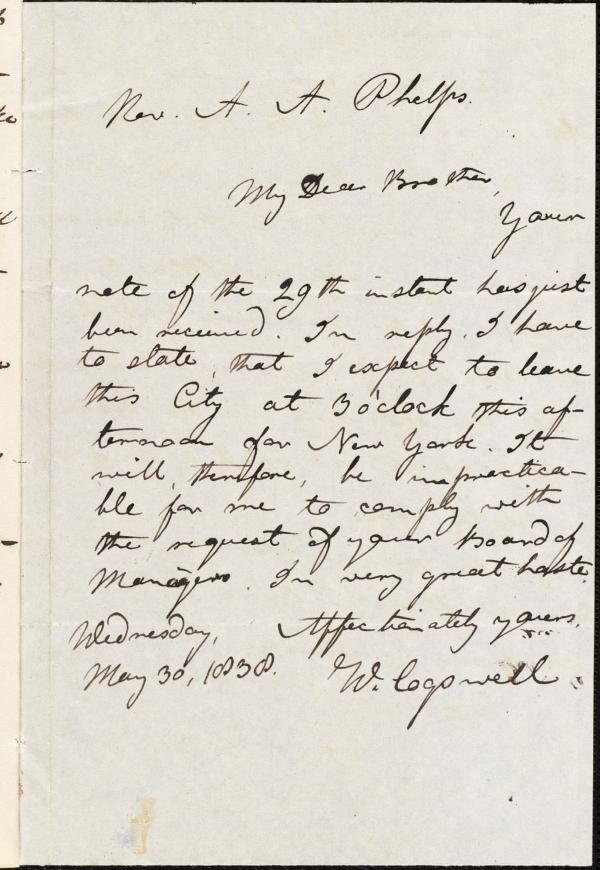 Rev. A. A. Phelps.
My Dear Brother,
Your
note of the 29th instant has just
been received. In reply, I have
to state, that I expect to leave
this City at 3 o'clock this af-
ternoon for New York. It
will, therefore, be impractica-
ble for me to comply with
the request of your Board of
Managers. In very great haste.
Wednesday, Affectionately yours,
May 30, 1838. W. Cogswell.